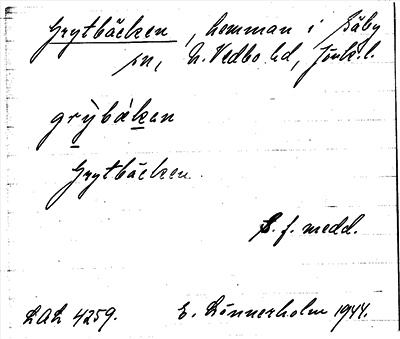 Grytbäcken, hemman i Säby
sn, N. Vedbo hd, Jönk. l.
grỳbäken
Grytbäcken
S. f. medd.
LAL 4259. E. Lönnerholm 1944.